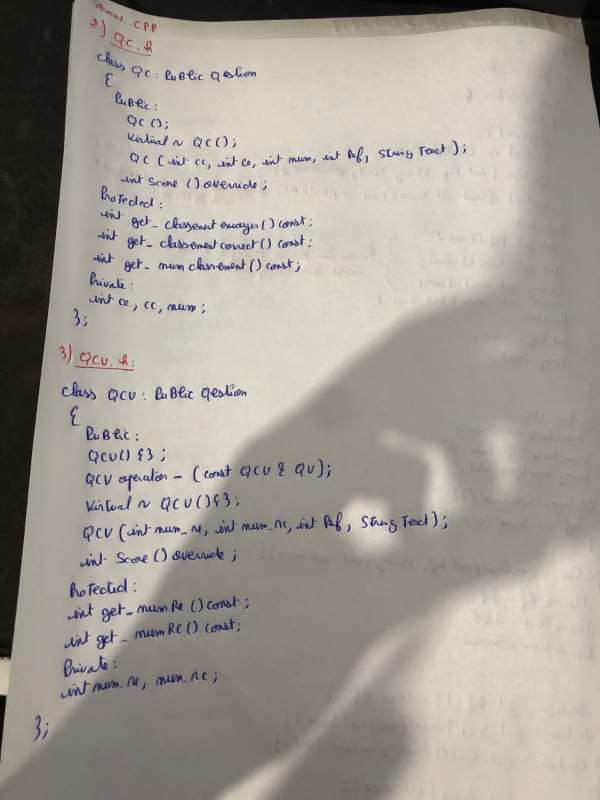 CPP
2) QC.h
class QC : Public Qestion
{
Public :
QC ();
Virtual ~ QC();
QC (int cc, int ce, int num, int Ref, String Text);
int Score () override ;
Protected :
int get_classement envoyer() const;
int get_classement correct() const;
int get_num classement () const;
Private :
int ce, cc, num ;
};
3) QCU.h:
class QCU : Public Qestion
{
Public :
QCU() {} ;
QCU operation - (const QCU & QU);
Virtual ~ QCU () {};
QCU (int num_re, int num_rc, int Ref, String Text);
int Score () override ;
Protected :
int get_numRe () const ;
int get_numRC () const;
Private :
int num_re, num_rc ;
};